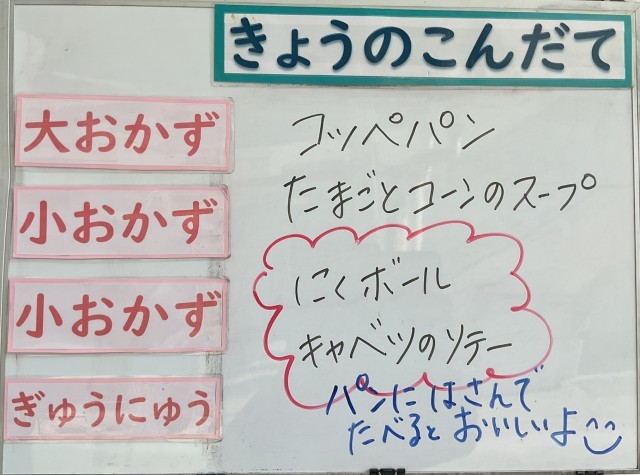 きょうのこんだて
大おかず
コッペパン
小おかず
たまごとコーンのスープ
小おかず
にくボール
キャベツのソテー
ぎゅうにゅう
パンにはさんで
たべるとおいしいよ